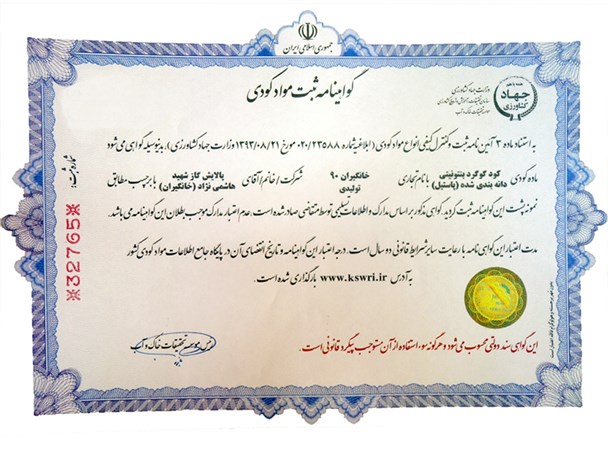 جمهوری اسلامی ایران
گواهینامه ثبت مواد کودی
جهاد کشاورزی
وزارت جهاد کشاورزی
سازمان تحقیقات، آموزش و ترویج کشاورزی
موسسه تحقیقات خاک و آب
به استناد ماده ۳ آئین نامه ثبت و کنترل کیفی انواع مواد کودی (ابلاغیه شماره ۰۲۰/۲۳۵۸۸ مورخ ۱۳۹۳/۰۸/۲۱ وزارت جهاد کشاورزی)، بدینوسیله گواهی می‌شود
ماده کودی گرد گوگرد بنتونیتی دانه بندی شده (پاستیل) با نام تجاری خانگیران ۹۰ تولیدی شرکت/خانم/آقای پالایش گاز شهید هاشمی نژاد (خانگیران) با برچسب مطابق
نمونه پشت این گواهینامه ثبت گردید. گواهی مذکور بر اساس مدارک و اطلاعات تسلیمی توسط متقاضی صادر شده است. عدم اعتبار مدارک موجب بطلان این گواهینامه می‌باشد.
مدت اعتبار این گواهی نامه با رعایت سایر شرایط قانونی دو سال است. درجه اعتبار این گواهینامه و تاریخ انقضای آن در پایگاه جامع اطلاعات مواد کودی کشور
به آدرس www.kswri.ir بارگذاری شده است.
شماره ثبت:
*32765*
رئیس موسسه تحقیقات خاک و آب
این گواهی سند دولتی محسوب می‌شود و هرگونه سوء استفاده از آن مستوجب پیگرد قانونی است.